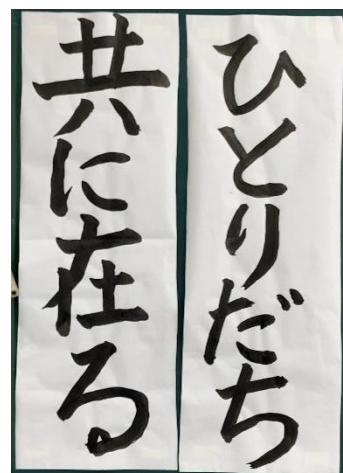 ひとりだち
共に在る